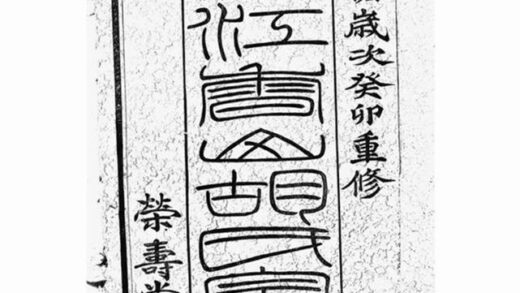 歲次癸卯重修
江山胡氏
榮壽堂